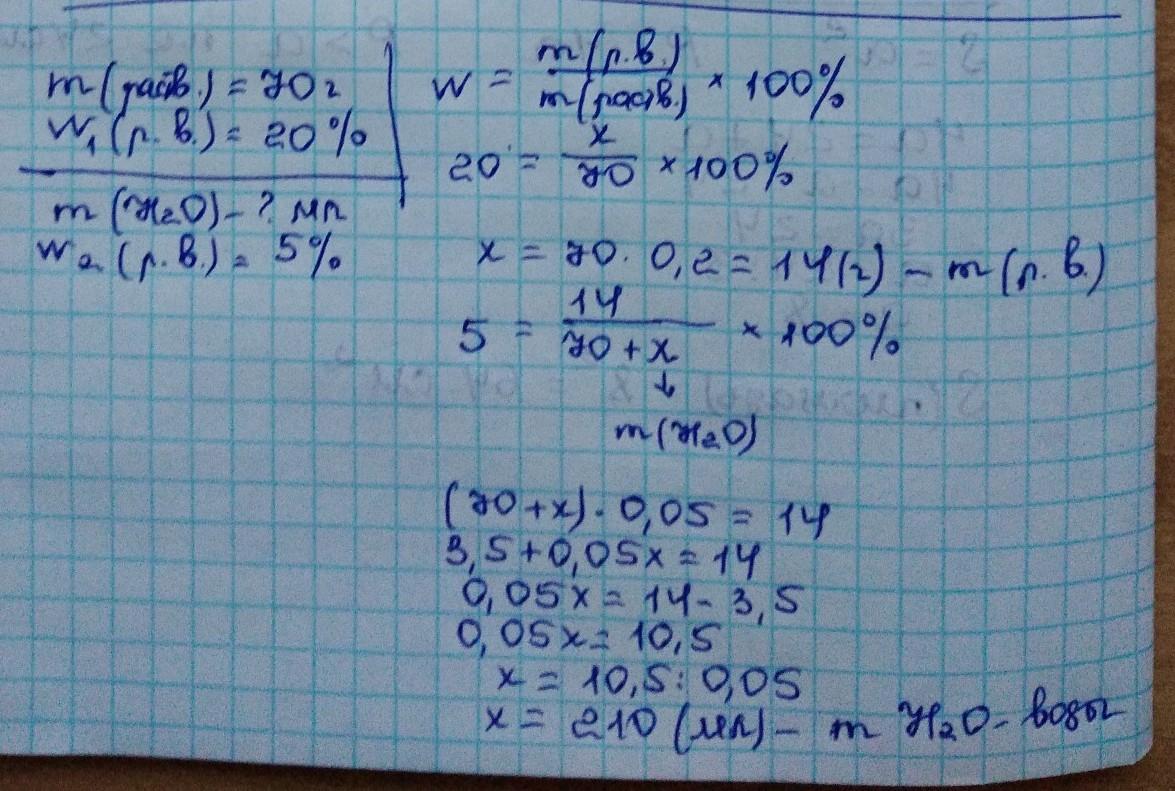 m(раств.) = 70г
W₁(р.в.) = 20%
m(H₂O) - ? мл
W₂(р.в.) = 5%
W = m(р.в.) / m(раств.) × 100%
20 = x / 70 × 100%
x = 70 · 0,2 = 14(г) - m(р.в.)
5 = 14 / 70 + x × 100%
↓
m(H₂O)
(70+x) · 0,05 = 14
3,5+0,05x = 14
0,05x = 14 - 3,5
0,05x = 10,5
x = 10,5 : 0,05
x = 210 (мл) - m H₂O - воды